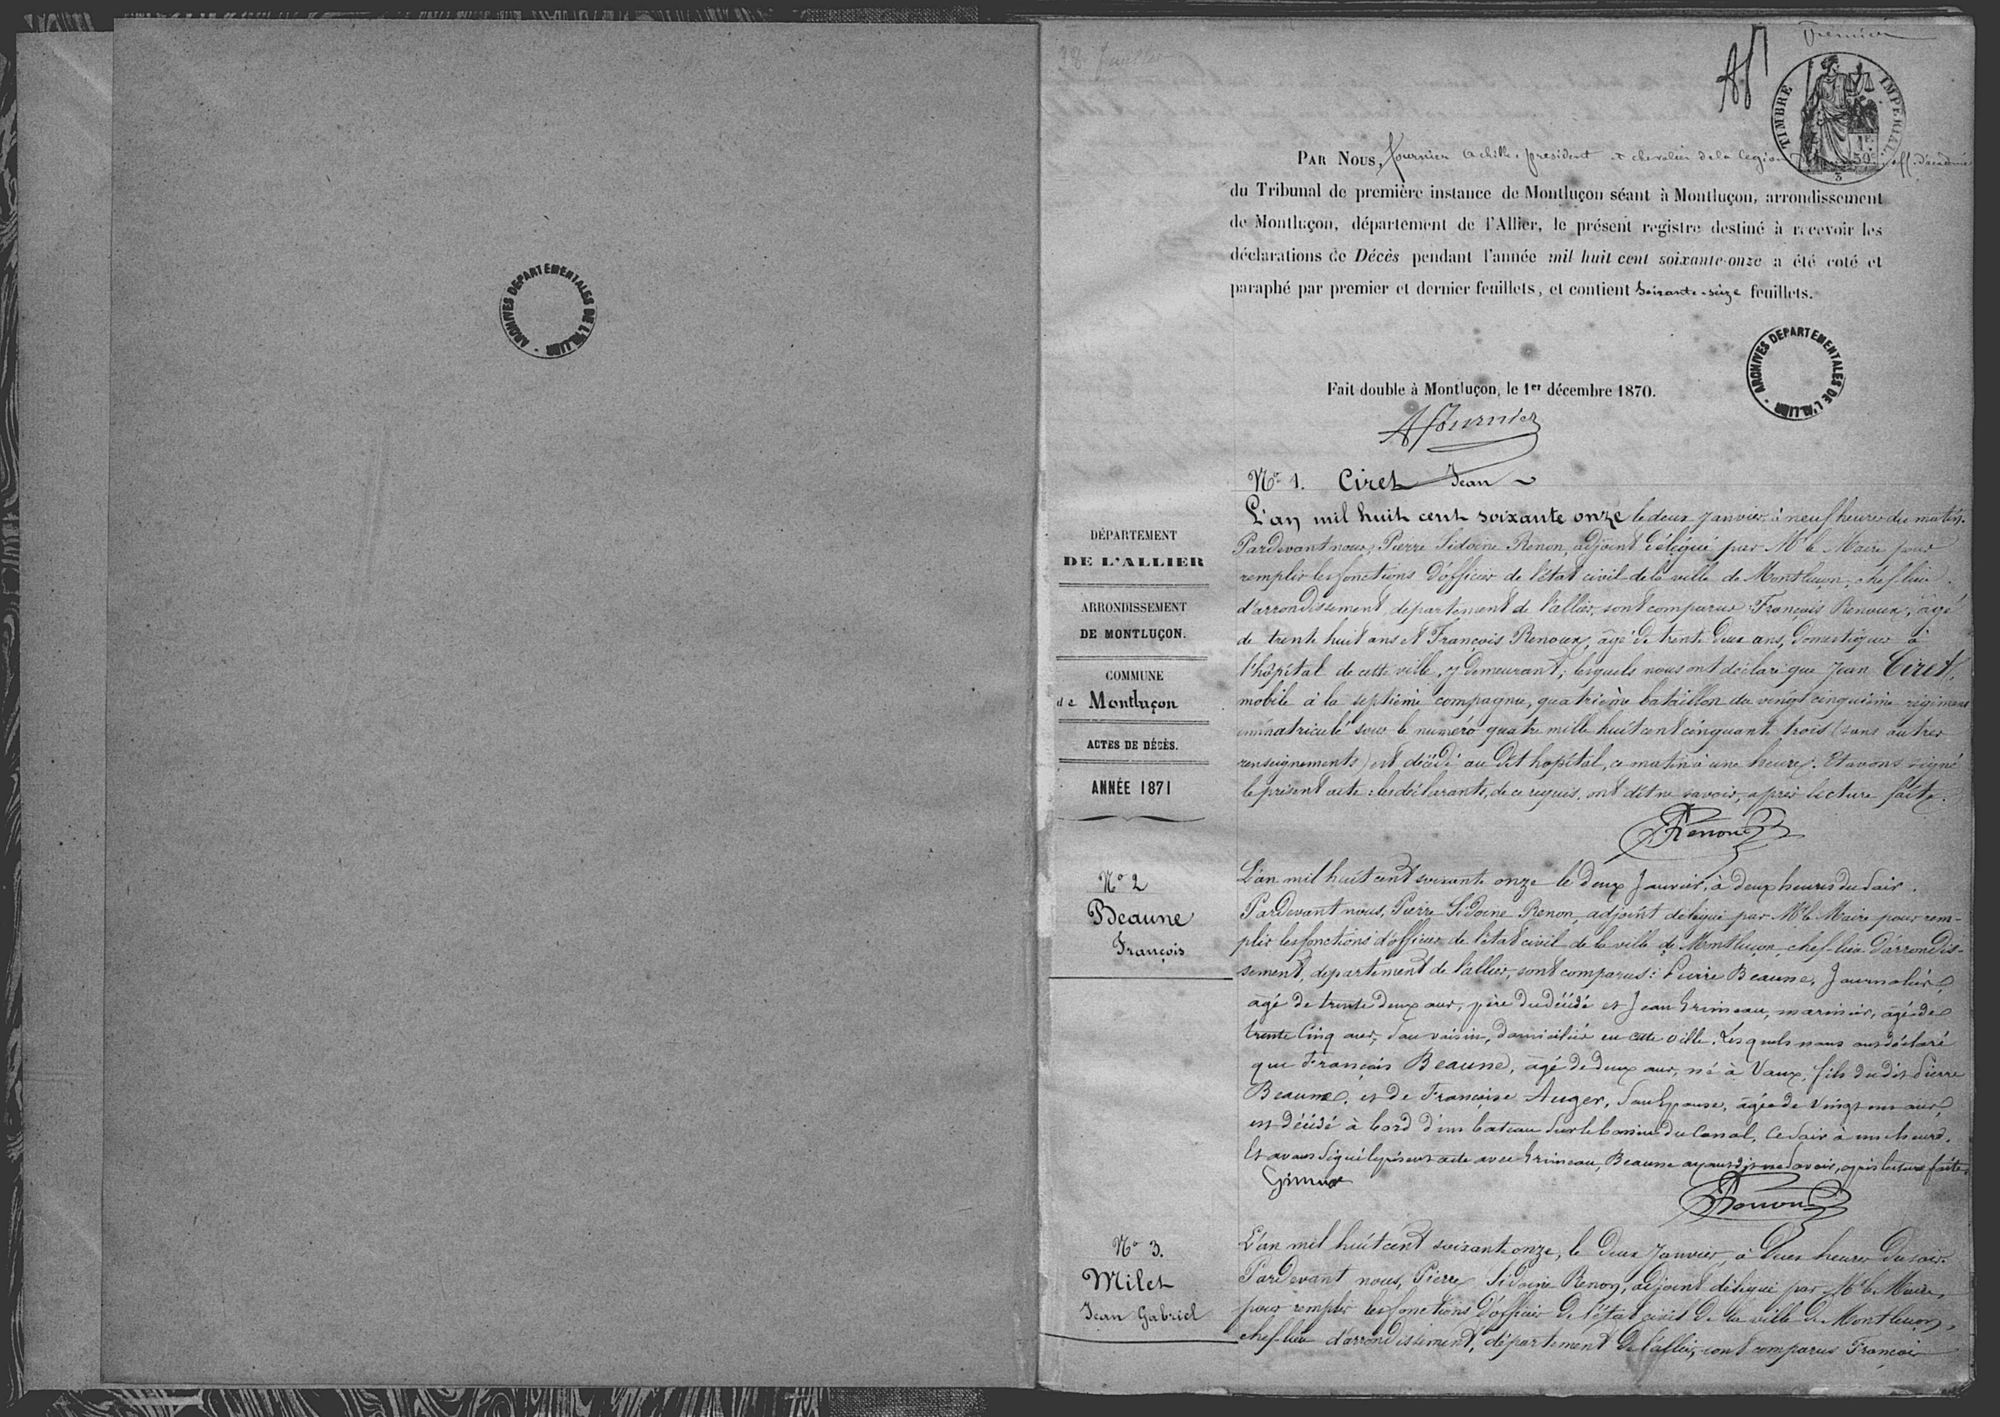 ARCHIVES DEPARTEMENTALES DE L'ALLIER
28 Janvier
Premier
TIMBRE IMPERIAL
1F.
50c.
3
PAR NOUS, Fournier Achille, président & chevalier de la Légion off. d'académie
du Tribunal de première instance de Montluçon séant à Montluçon, arrondissement
de Montluçon, département de l'Allier, le présent registre destiné à recevoir les
déclarations de Décès pendant l'année mil huit cent soixante-onze a été coté et
paraphé par premier et dernier feuillets, et contient Soixante-seize feuillets.
ARCHIVES DEPARTEMENTALES DE L'ALLIER
Fait double à Montluçon, le 1er décembre 1870.
AFournier
DÉPARTEMENT
DE L'ALLIER
ARRONDISSEMENT
DE MONTLUÇON.
COMMUNE
de Montluçon
ACTES DE DÉCÈS.
ANNÉE 1871
No 1. Ciret Jean
L'an mil huit cent soixante onze le deux Janvier, à neuf heures du matin.
Pardevant nous, Pierre Sidoine Renon, adjoint délégué par Mr le Maire pour
remplir les fonctions d'officier de l'état civil de la ville de Montluçon, chef-lieu
d'arrondissement, département de l'allier, sont comparus François Renoux, âgé
de trente huit ans et François Renoux, âgé de trente deux ans, domestiques à
l'hôpital de cette ville, y demeurant; lesquels nous ont déclaré que Jean Ciret,
mobile à la septième compagnie, quatrième bataillon du vingt cinquième régiment
immatriculé sous le numéro quatre mille huit cent cinquante trois (sans autres
renseignements) est décédé au dit hopital, ce matin à une heure. Et avons signé
le présent acte: les déclarants, de ce requis, ont dit ne savoir, après lecture faite.
Renon
No 2
Beaune
François
L'an mil huit cent soixante onze le deux Janvier, à deux heures du soir.
Pardevant nous, Pierre Sidoine Renon, adjoint délégué par Mr le Maire pour rem-
plir les fonctions d'officier de l'état civil de la ville de Montluçon, chef-lieu d'arrondis-
sement, département de l'allier, sont comparus: Pierre Beaune, Journalier,
agé de trente deux ans, père du décédé et Jean Grimeau, marinier, agé de
trente cinq ans, Son voisin, domiciliés en cette ville. Lesquels nous ont déclaré
que François Beaune, agé de deux ans, né à Vaux, fils du dit Pierre
Beaune, et de Françoise Auger, Son Epouse, agée de vingt ans,
est décédé à bord d'un bateau sur le bassin du Canal, ce soir à une heure.
Et avons signé le présent acte avec Grimeau, Beaune ayant dit ne savoir, après lecture faite.
Renon
No 3.
Milet
Jean Gabriel
L'an mil huit cent soixante onze, le deux Janvier à deux heures du soir.
Pardevant nous, Pierre Sidoine Renon, adjoint délégué par Mr le Maire,
pour remplir les fonctions d'officier de l'état civil de la ville de Montluçon,
chef-lieu d'arrondissement, département de l'allier, sont comparus François